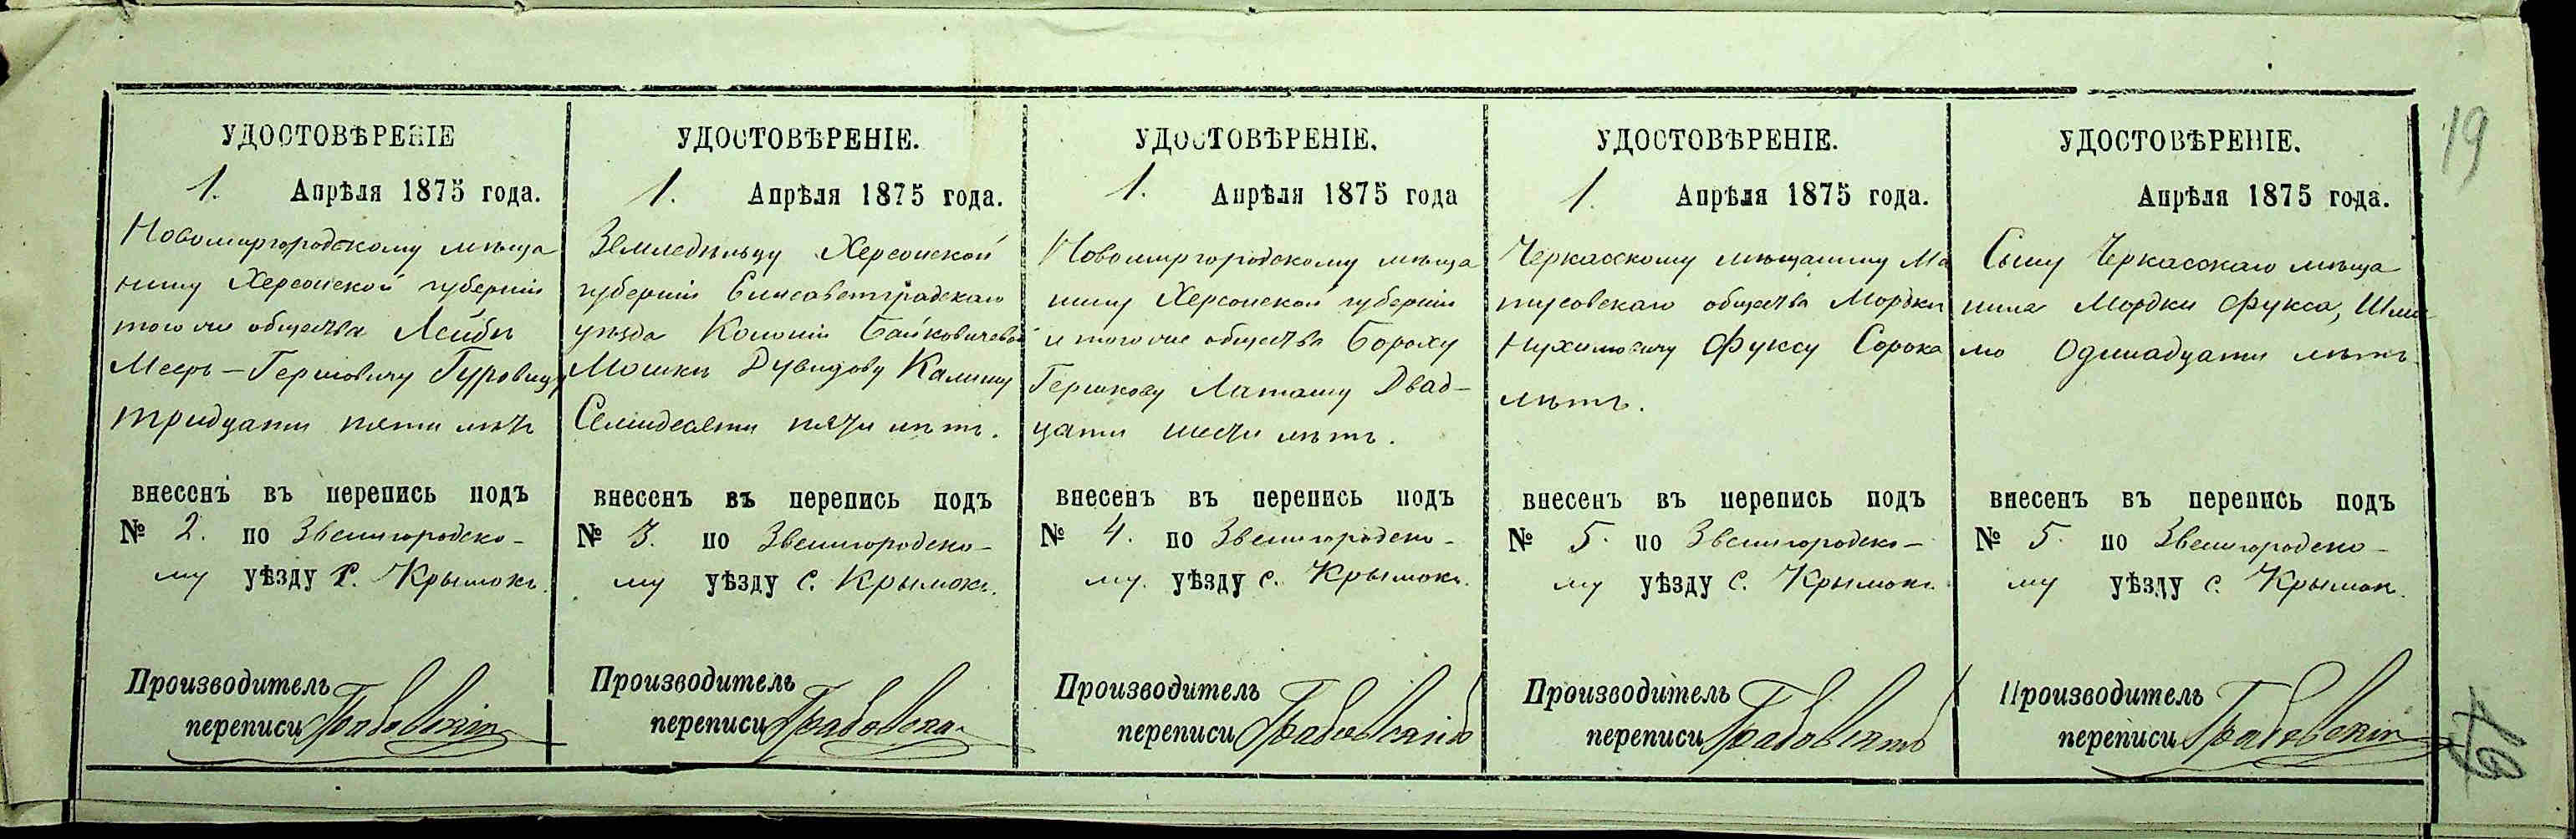 УДОСТОВѢРЕНІЕ
1. Апрѣля 1875 года.
Новомиргородскому мѣща
нину Херсонской губерніи
того же общества Лейбѣ
Мееръ-Гершовичу Гуровицу
тридцати пяти лѣтъ
внесенъ въ перепись подъ
№ 2. по Звенигородско-
му уѣзду с. Крымокъ.
Производитель
переписи Грабовскій
УДОСТОВѢРЕНІЕ.
1. Апрѣля 1875 года.
Земледѣльцу Херсонской
губерніи Елисаветградскаго
уѣзда Колоніи
Мошкѣ Дувидову Калину
Семидесяти пяти лѣтъ.
внесенъ въ перепись подъ
№ 3. по Звенигородско-
му уѣзду с. Крымокъ.
Производитель
переписи Грабовскій
УДОСТОВѢРЕНІЕ.
1. Апрѣля 1875 года
Новомиргородскому мѣща
нину Херсонской губерніи
и того же общества Бороху
Гершкову Латашу Двад-
цати шести лѣтъ.
внесенъ въ перепись подъ
№ 4. по Звенигородско-
му уѣзду с. Крымокъ.
Производитель
переписи Грабовскій
УДОСТОВѢРЕНІЕ.
1. Апрѣля 1875 года.
Черкасскому мѣщанину Ма
тусовскаго общества Мордки
Нухимовичу Фуксу Сорока
лѣтъ.
внесенъ въ перепись подъ
№ 5. по Звенигородско-
му уѣзду с. Крымокъ.
Производитель
переписи Грабовскій
УДОСТОВѢРЕНІЕ.
Апрѣля 1875 года.
Сыну Черкасскаго мѣща
нина Мордки Фукса, Шли
мо Одинадцати лѣтъ.
внесенъ въ перепись подъ
№ 5. по Звенигородско-
му уѣзду с. Крымок.
Производитель
переписи Грабовскій
19